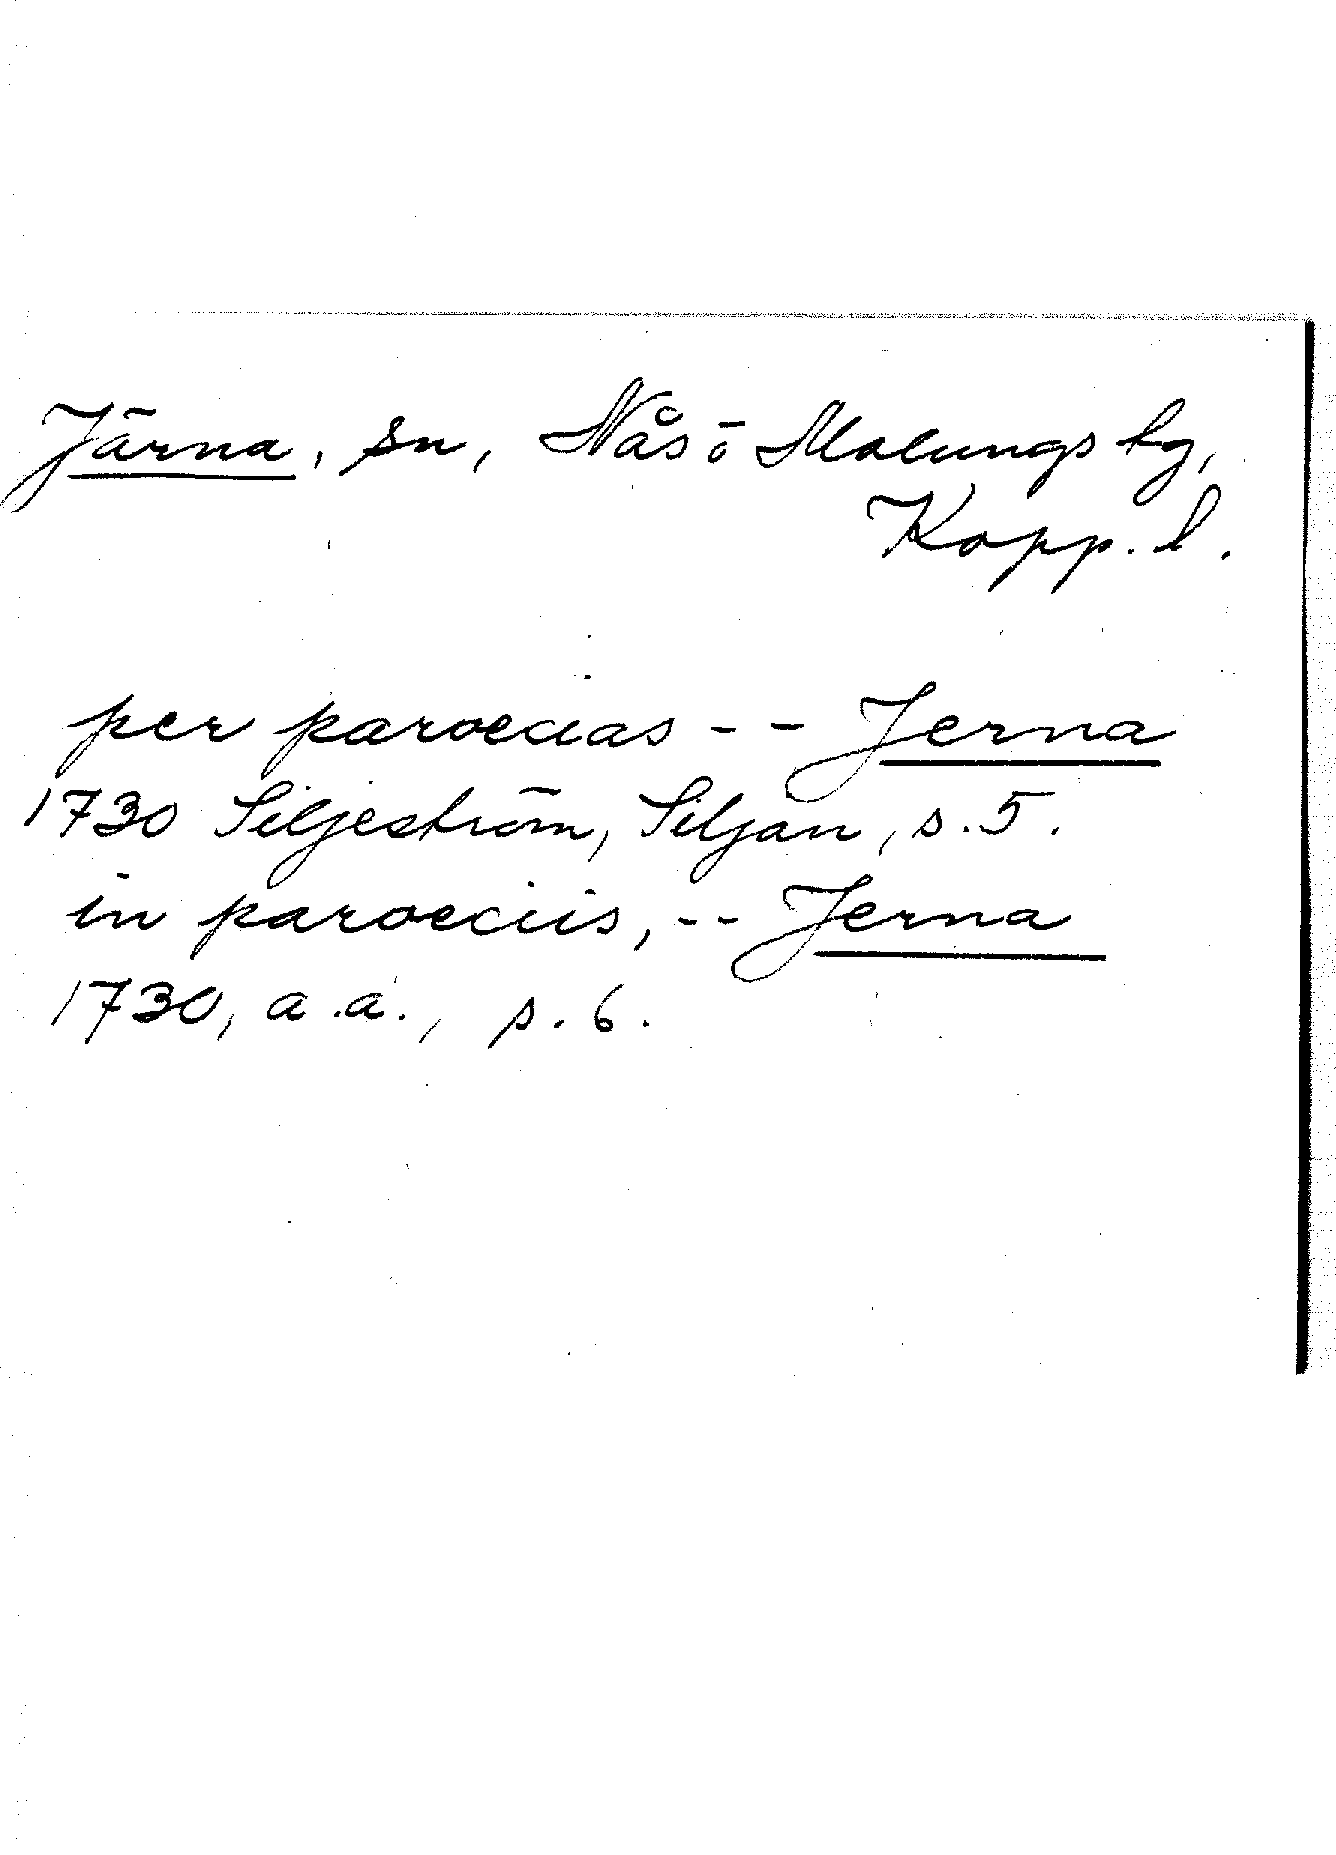 Järna, sn, Nås o Malungs tg,
Kopp. l.
per paroecias -- Jerna
1730 Siljeström, Siljan, s. 5.
in paroeciis, -- Jerna
1730, a.a., s. 6.